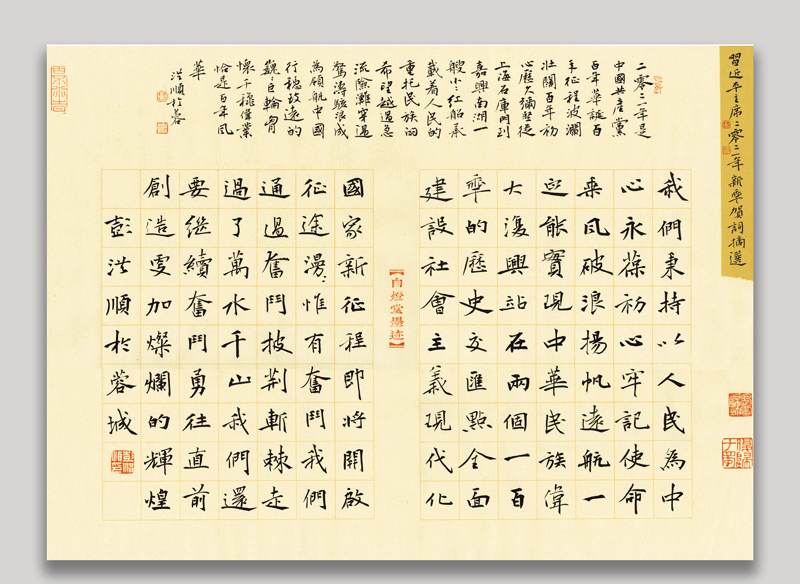 習近平主席二零二一年新年贺詞摘選
二零二一年是
中國共産黨
百年華誕百
年征程波瀾
壯闊百年初
心歷久彌堅從
上海石庫門到
嘉興南湖一
艘小小紅船承
載着人民的
重托民族的
希望越過急
流險灘穿過
驚濤駭浪成
為領航中國
行穩致遠的
巍巍巨輪胸
懷千秋偉業
恰是百年風
華
洪順於蓉
我們秉持以人民為中
心永葆初心牢記使命
乘風破浪揚帆遠航一
定能實現中華民族偉
大復興站在兩個一百
年的歷史交匯點全面
建設社會主義現代化
【自燈堂墨迹】
國家新征程即將開啟
征途漫漫惟有奮鬥我們
通過奮鬥披荆斬棘走
過了萬水千山我們還
要繼續奮鬥勇往直前
創造更加燦爛的輝煌
彭洪順於蓉城